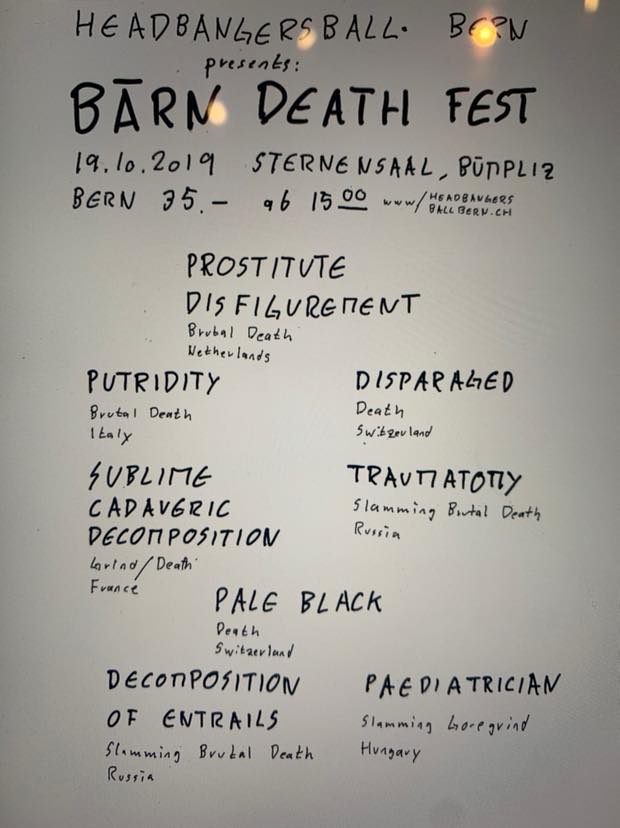 HEADBANGERSBALL. BERN
presents:
BĀRN DEATH FEST
19.10.2019 STERNENSAAL, BŪMPLIZ
BERN 35.- ab 15 00 www/HEADBANGERS
BALLBERN.CH
PROSTITUTE
DISFIGUREMENT
Brutal Death
Netherlands
PUTRIDITY
Brutal Death
Italy
DISPARAGED
Death
Switzerland
SUBLIME
CADAVERIC
DECOMPOSITION
Grind/Death
France
TRAUMATOMY
Slamming Brutal Death
Russia
PALE BLACK
Death
Switzerland
DECOMPOSITION
OF ENTRAILS
Slamming Brutal Death
Russia
PAEDIATRICIAN
Slamming Goregrind
Hungary